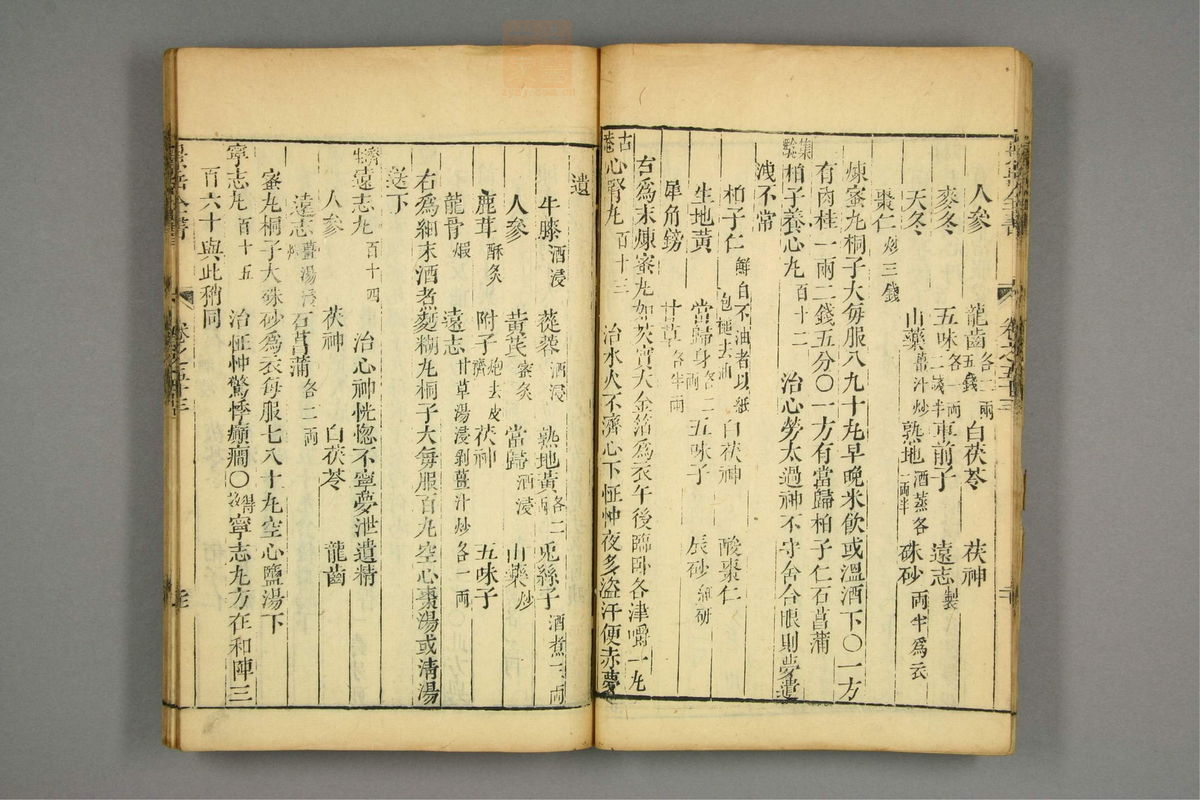 人參 龍齒各二兩五錢 白茯苓 茯神
麥冬 五味各二錢半兩 車前子 遠志製
天冬 山藥薑汁炒 熟地酒蒸各一兩半 硃砂兩半為衣
棗仁炒三錢
煉蜜丸桐子大每服八九十丸早晚米飲或溫酒下〇一方
有肉桂一兩二錢五分〇一方有當歸柏子仁石菖蒲
集驗柏子養心丸百十二 治心勞太過神不守舍合眼則夢遺
洩不常
柏子仁鮮白不油者以紙包搥去油 白茯神 酸棗仁
生地黃 當歸身各二兩 五味子 辰砂細研
犀角鎊 甘草各半兩
右為末煉蜜丸如芡實大金箔為衣午後臨臥各津嚼一丸
古菴心腎丸百十三 治水火不濟心下怔忡夜多盜汗便赤夢
遺
牛膝酒浸 蓯蓉酒浸 熟地黃各二兩 兎絲子酒煮三兩
人參 黃芪蜜炙 當歸酒浸 山藥炒
鹿茸酥炙 附子炮去皮臍 茯神 五味子
龍骨煅 遠志甘草湯浸剝薑汁炒各一兩
右為細末酒煮麫糊丸桐子大每服百丸空心棗湯或清湯
送下
濟生遠志丸百十四 治心神恍惚不寧夢泄遺精
人參 茯神 白茯苓 龍齒
遠志薑湯浸炒 石菖蒲各二兩
蜜丸桐子大硃砂為衣每服七八十丸空心鹽湯下
寧志丸百十五 治怔忡驚悸癲癇〇得效寧志丸方在和陣三
百六十與此稍同